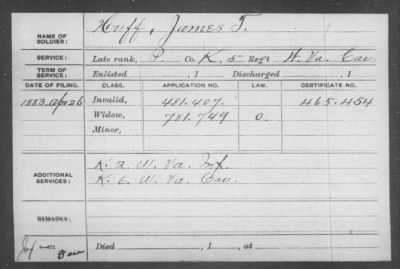 NAME OF SOLDIER: Houff, James T.
SERVICE: Late rank, P. Co. K. 5 Reg't W. Va. Cav.
TERM OF SERVICE: Enlisted , 1 Discharged , 1
DATE OF FILING. CLASS. APPLICATION NO. LAW. CERTIFICATE NO.
1883 Apr 26 Invalid, 481.407. 465.454
Widow, 781.749 O.
Minor,
ADDITIONAL SERVICES: K. 2. W. Va. Inf.
K. 6. W. Va. Cav.
REMARKS:
Died , 1 , at